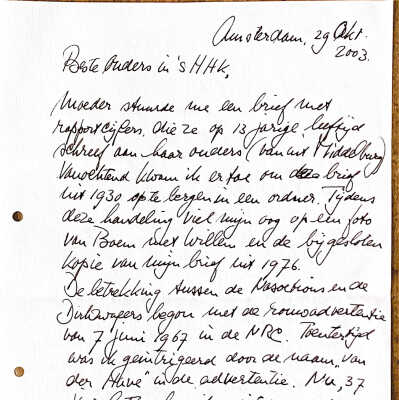 Amsterdam, 29 Okt.
2003.
Beste ouders in 's HHK,
Moeder stuurde me een brief met
rapportcijfers, die ze op 13 jarige leeftijd
schreef aan haar ouders (vanuit Middelburg)
Vanochtend kwam ik ertoe om deze brief
uit 1930 op te bergen in een ordner. Tijdens
deze handeling viel mijn oog op een foto
van Boem met Willem en de bijgesloten
kopie van mijn brief uit 1976.
De betrekking tussen de en de
Dirkzwagers begon met de rouwadvertentie
van 7 juni 1967 in de NRC. Toentertijd
was ik geïntrigeerd door de naam „van
der " in de advertentie. Nu, 37